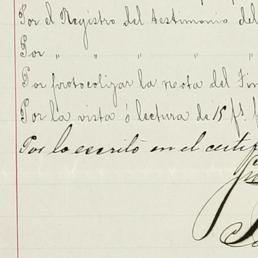 Por el Registro del testimonio del
Por " "
Por protocolizar la nota del Fin
Por la vista ó lectura de 15 fs.
Por lo escrito en el certif